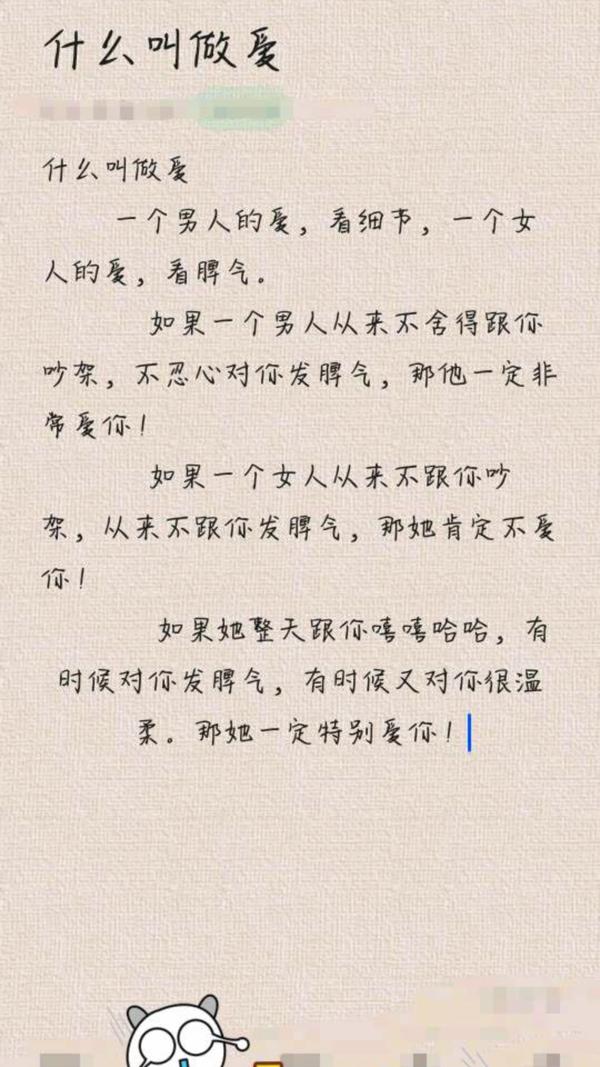 什么叫做爱
什么叫做爱
一个男人的爱，看细节，一个女
人的爱，看脾气。
如果一个男人从来不舍得跟你
吵架，不忍心对你发脾气，那他一定非
常爱你！
如果一个女人从来不跟你吵
架，从来不跟你发脾气，那她肯定不爱
你！
如果她整天跟你嘻嘻哈哈，有
时候对你发脾气，有时候又对你很温
柔。那她一定特别爱你！